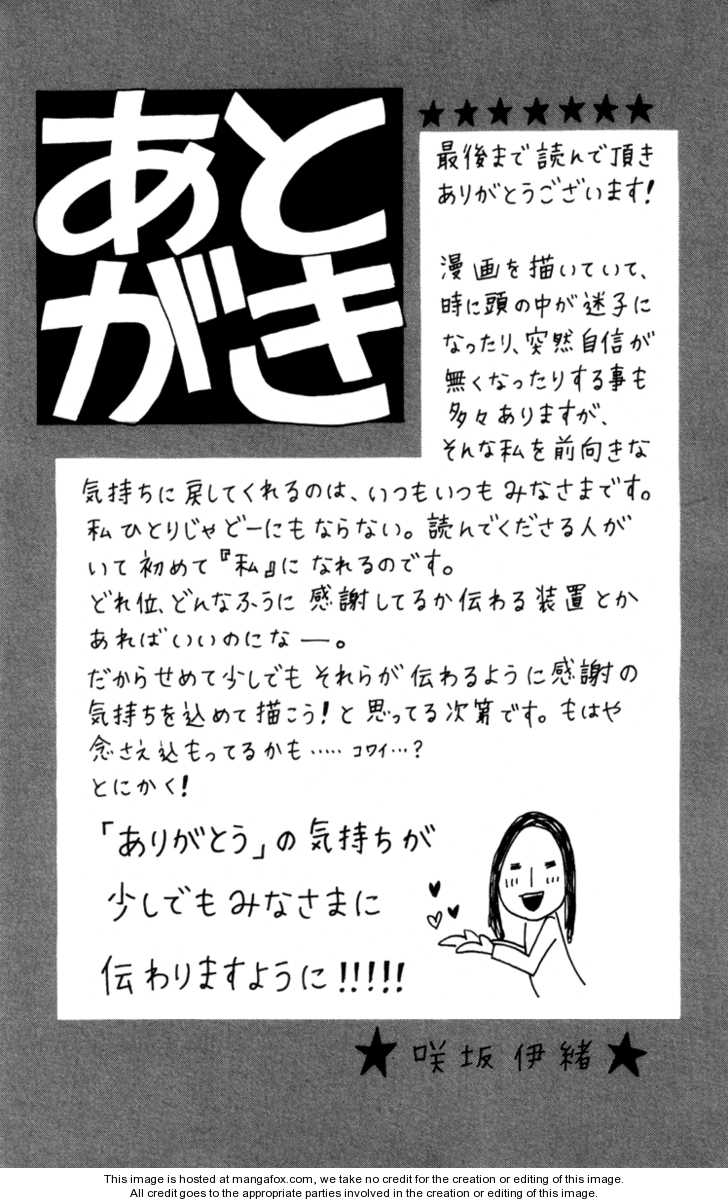 あと
がき
最後まで読んで頂き
ありがとうございます!
漫画を描いていて、
時に頭の中が迷子に
なったり、突然自信が
無くなったりする事も
多々ありますが、
そんな私を前向きな
気持ちに戻してくれるのは、いつもいつもみなさまです。
私ひとりじゃどーにもならない。読んでくださる人が
いて初めて『私』になれるのです。
どれ位、どんなふうに感謝してるか伝わる装置とか
あればいいのになー。
だからせめて少しでもそれらが伝わるように感謝の
気持ちを込めて描こう!と思ってる次第です。もはや
念さえ込もってるかも……コワイ…?
とにかく!
「ありがとう」の気持ちが
少しでもみなさまに
伝わりますように!!!!!
★咲坂伊緒★
This image is hosted at mangafox.com, we take no credit for the creation or editing of this image.
All credit goes to the appropriate parties involved in the creation or editing of this image.